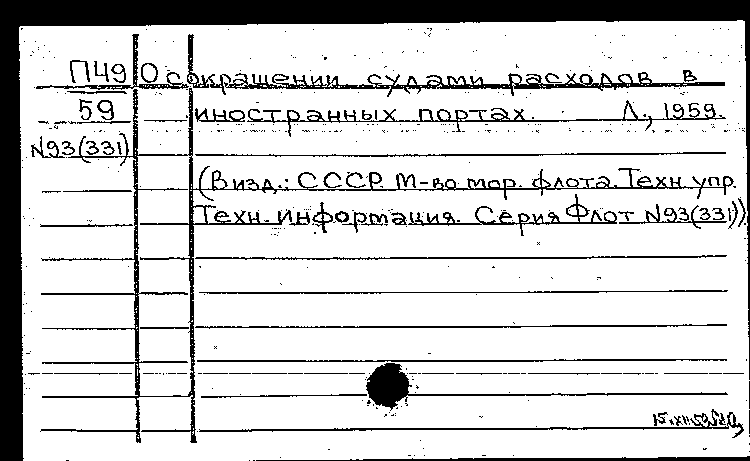 П49 О сокращении судами расходов в
59 иностранных портах. Л., 1959.
N93(331)
(В изд.: СССР. М-во мор. флота. Техн. упр.
Техн. информация. Серия Флот N93(331))